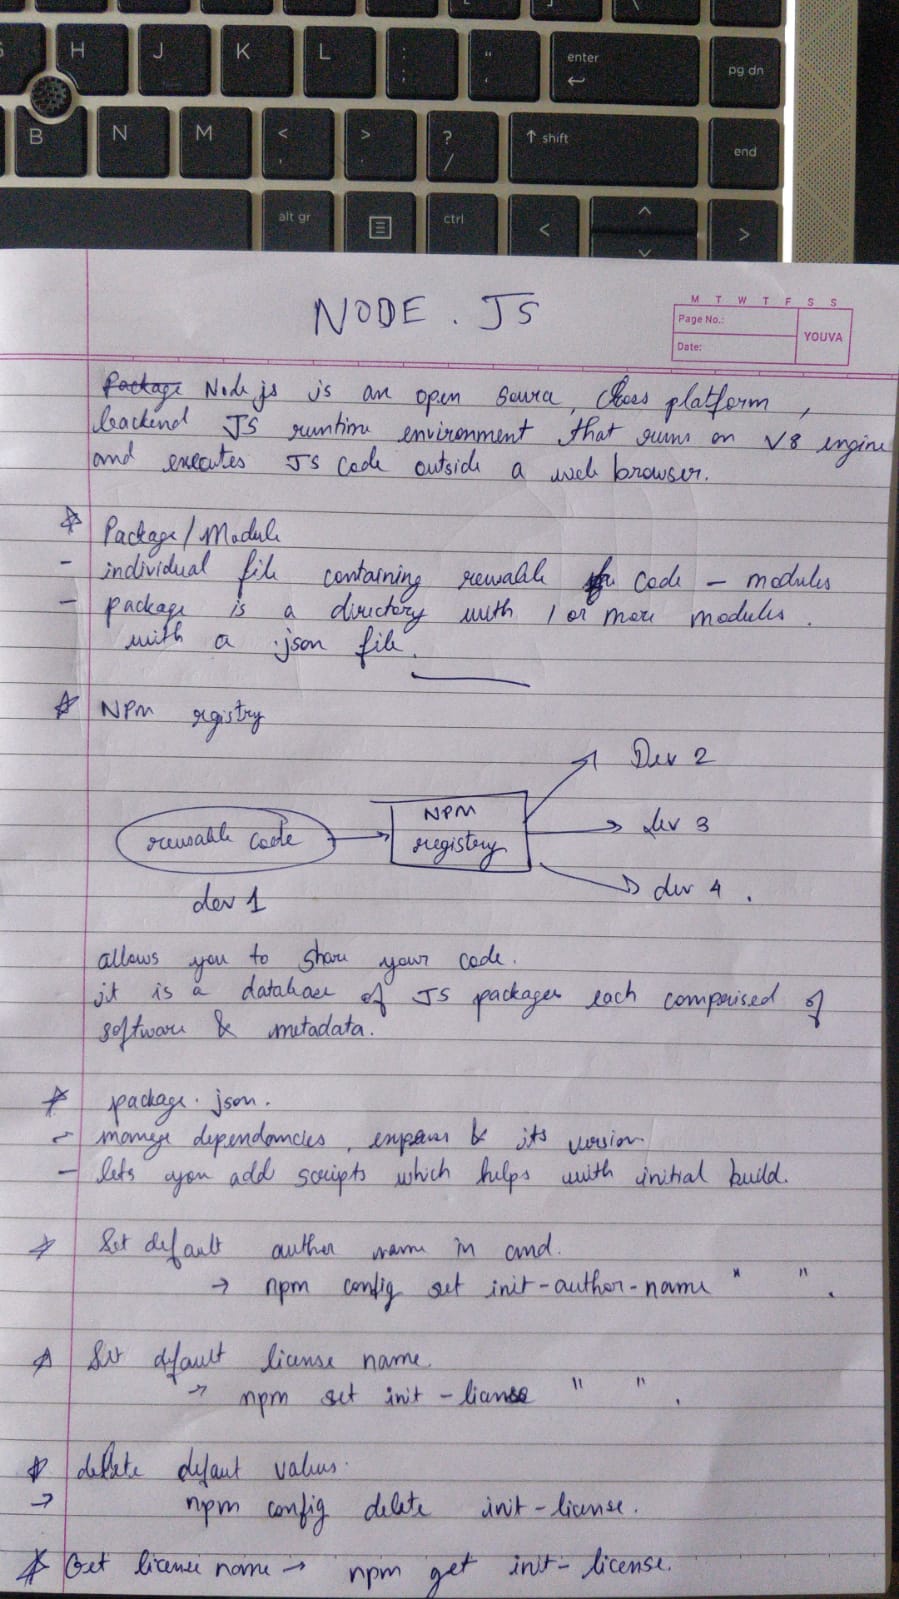 H J K L : ; " ' enter pg dn
B N M < , > . ? / ↑ shift end
alt gr ctrl < ^ >
M T W T F S S
Page No.:
YOUVA
Date:
NODE . JS
Package Node js is an open source, Cross platform,
backend JS runtime environment that runs on V8 engine
and executes JS Code outside a web browser.
* Package/Module
- individual file containing reusable code - modules
- package is a directory with 1 or more modules.
with a .json file.
* NPM registry
Dev 2
reusable code → NPM registry → dev 3
dev 1
dev 4 .
allows you to share your code.
it is a database of JS packages each comprised of
software & metadata.
* package. json.
- manage dependancies, & its version.
- lets you add scripts which helps with initial build.
* Set default author name in cmd.
→ npm config set init-author-name " ".
* Set default license name.
→ npm set init-license " ".
* delete defaut values.
→ npm config delete init-license.
* Get license name → npm get init-license.